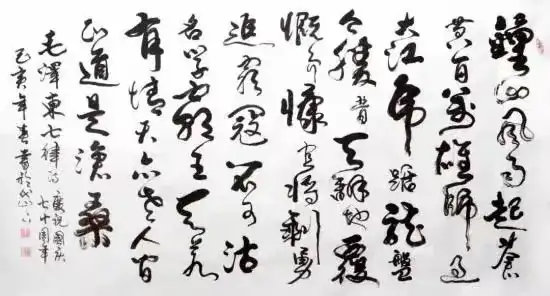 鐘山風雨起蒼
黄百萬雄師過
大江虎踞龍盤
今勝昔天翻地覆
慨而慷宜將剩勇
追窮寇不可沽
名學霸王天若
有情天亦老人間
正道是滄桑
毛澤東七律詩
慶祝國慶
七十周年
己亥年春書於